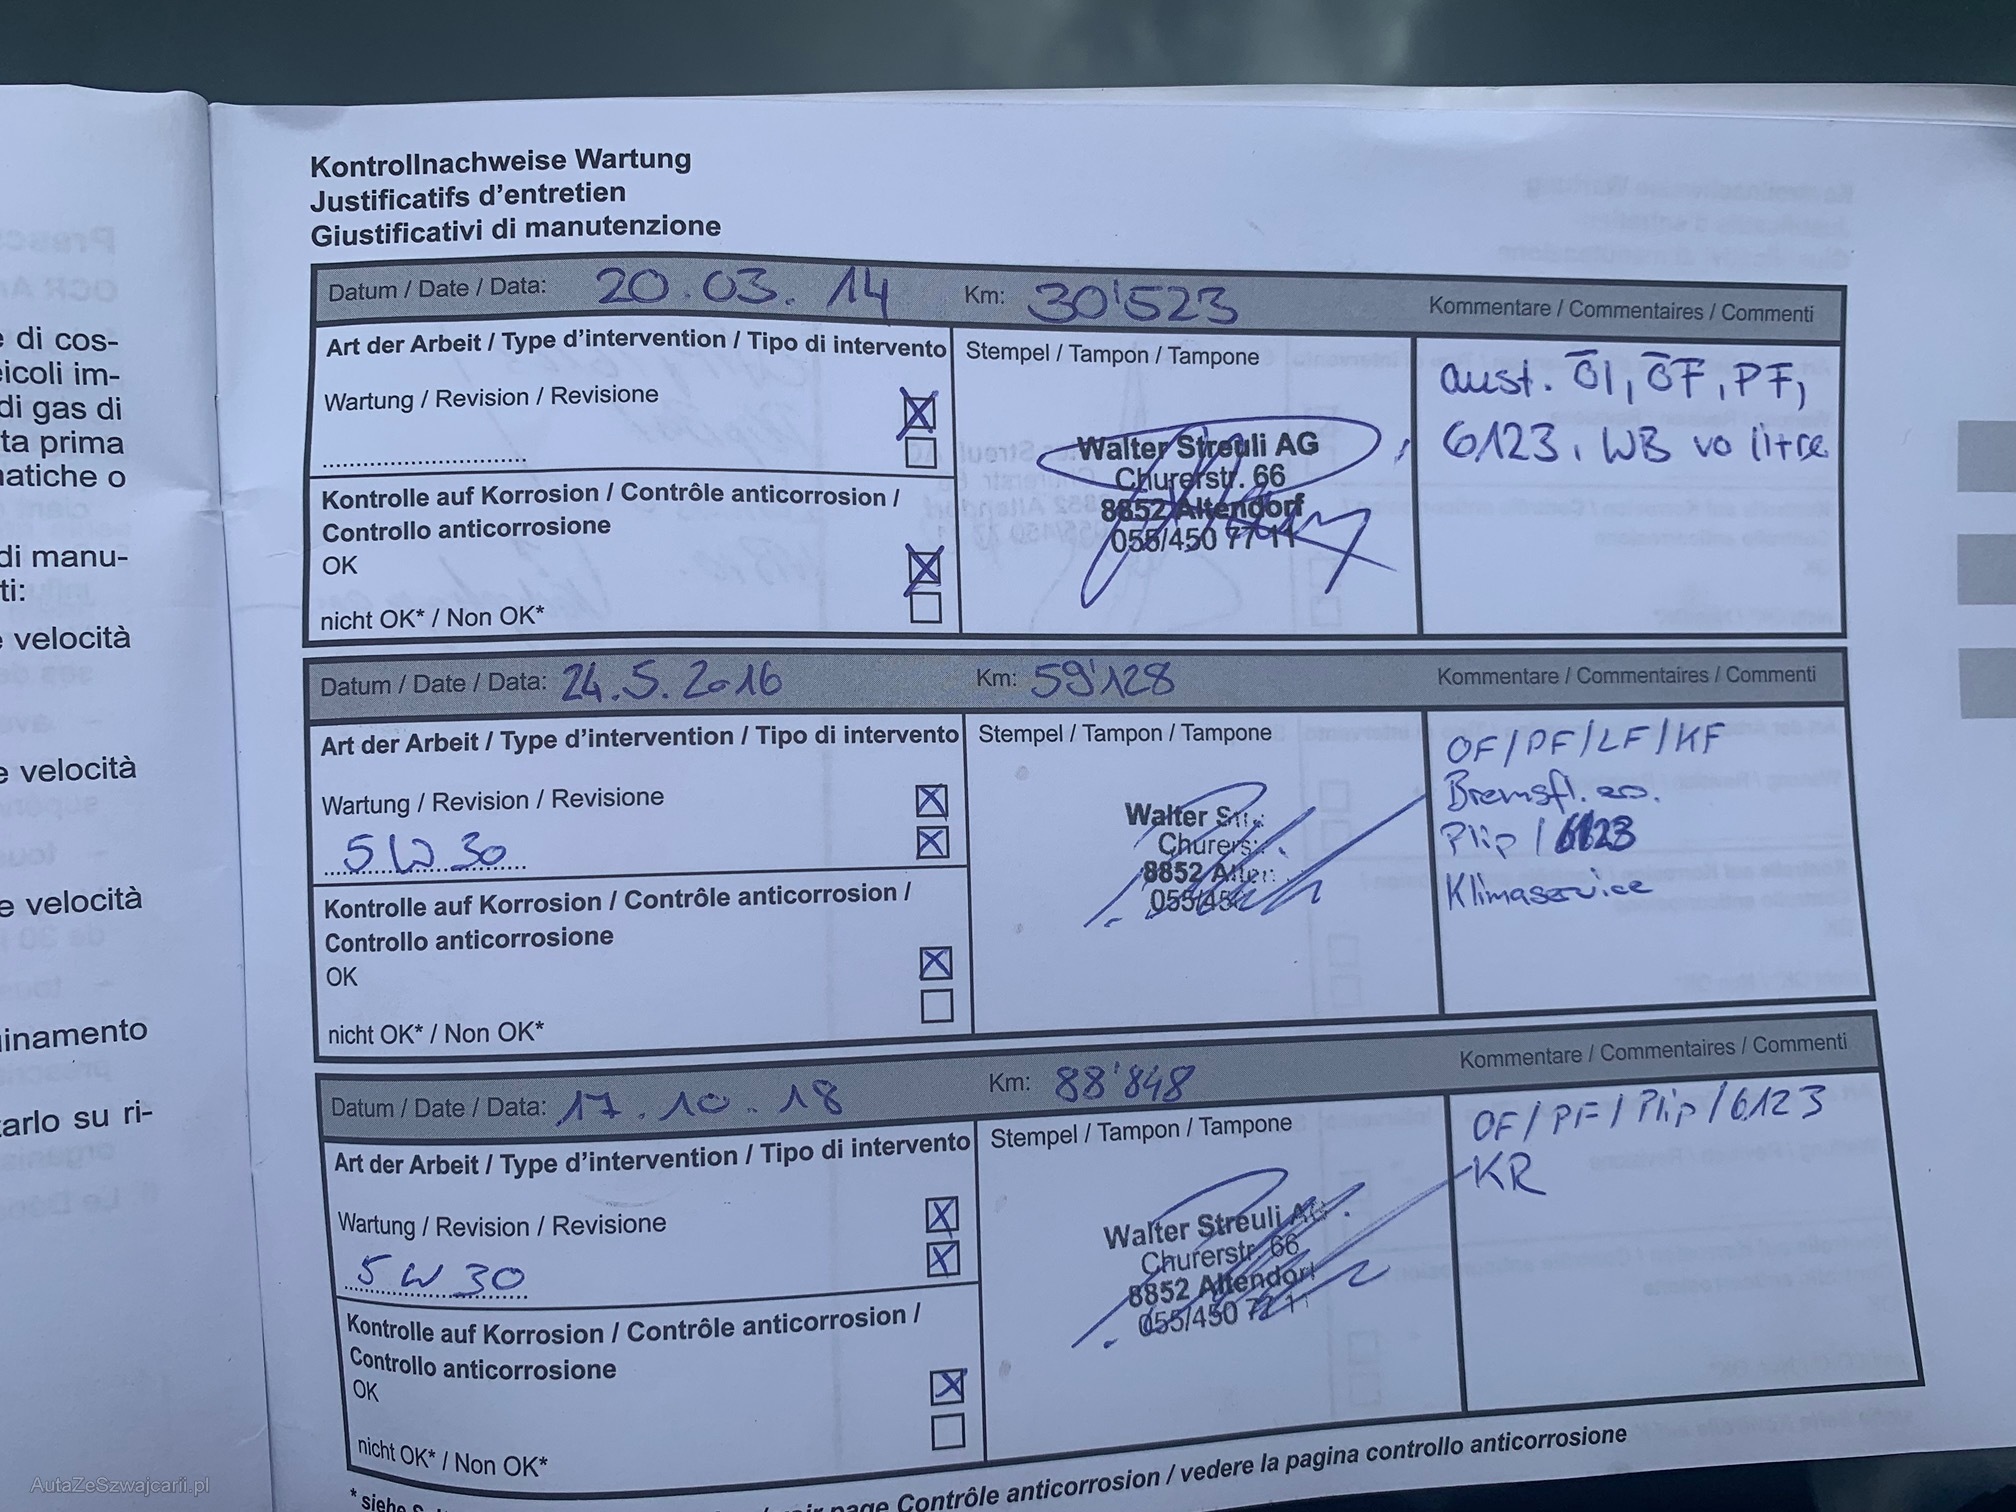 Kontrollnachweise Wartung
Justificatifs d'entretien
Giustificativi di manutenzione
Datum / Date / Data: 20.03.14 Km: 30'523 Kommentare / Commentaires / Commenti
Art der Arbeit / Type d'intervention / Tipo di intervento
Wartung / Revision / Revisione
Kontrolle auf Korrosion / Contrôle anticorrosion /
Controllo anticorrosione
OK
nicht OK* / Non OK*
Stempel / Tampon / Tampone
Walter Streuli AG
Churerstr. 66
8852 Altendorf
055/450 77 11
aust. ÖI, ÖF, PF,
G123, WB vo litre
Datum / Date / Data: 24.5.2016 Km: 59'128 Kommentare / Commentaires / Commenti
Art der Arbeit / Type d'intervention / Tipo di intervento
Wartung / Revision / Revisione
5W30
Kontrolle auf Korrosion / Contrôle anticorrosion /
Controllo anticorrosione
OK
nicht OK* / Non OK*
Stempel / Tampon / Tampone
Walter
8852
OF/PF/LF/KF
Bremsfl.
Plip / G123
Klimaservice
Datum / Date / Data: 17.10.18 Km: 88'848 Kommentare / Commentaires / Commenti
Art der Arbeit / Type d'intervention / Tipo di intervento
Wartung / Revision / Revisione
5W30
Kontrolle auf Korrosion / Contrôle anticorrosion /
Controllo anticorrosione
OK
nicht OK* / Non OK*
Stempel / Tampon / Tampone
Walter Streuli AG
Churerstr. 66
8852 Altendorf
055/450
OF/PF/Plip/G123
KR
* siehe
page Contrôle anticorrosion / vedere la pagina controllo anticorrosione
di cos-
eicoli im-
di gas di
ta prima
natiche o
di manu-
ti:
velocità
e velocità
e velocità
inamento
tarlo su ri-
AutaZeSzwajcarii.pl